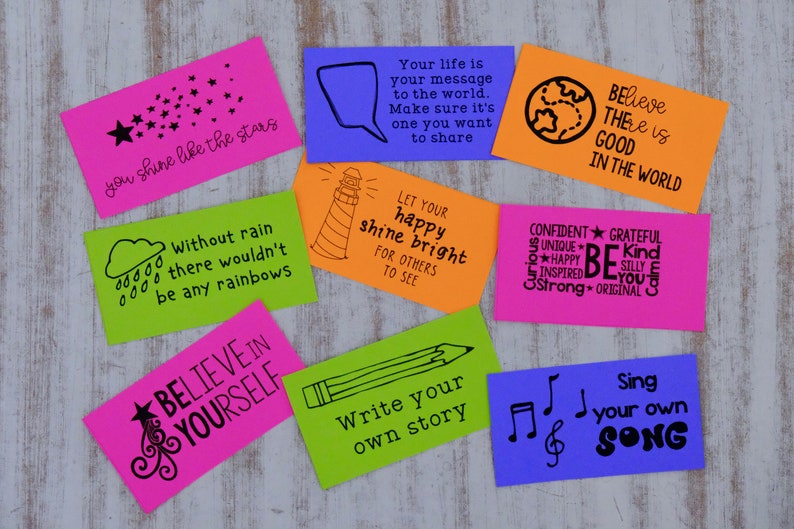 you shine like the stars
Your life is
your message
to the world.
Make sure it's
one you want
to share
BElieve
THEre is
GOOD
IN THE WORLD
Without rain
there wouldn't
be any rainbows
LET YOUR
happy
shine bright
FOR OTHERS
TO SEE
CONFIDENT ★ GRATEFUL
Curious
UNIQUE ★
★ HAPPY
INSPIRED
BE
Kind
SILLY
YOU
Calm
Strong ★ ORIGINAL
BELIEVE IN
YOURSELF
Write your
own story
Sing
your own
SONG